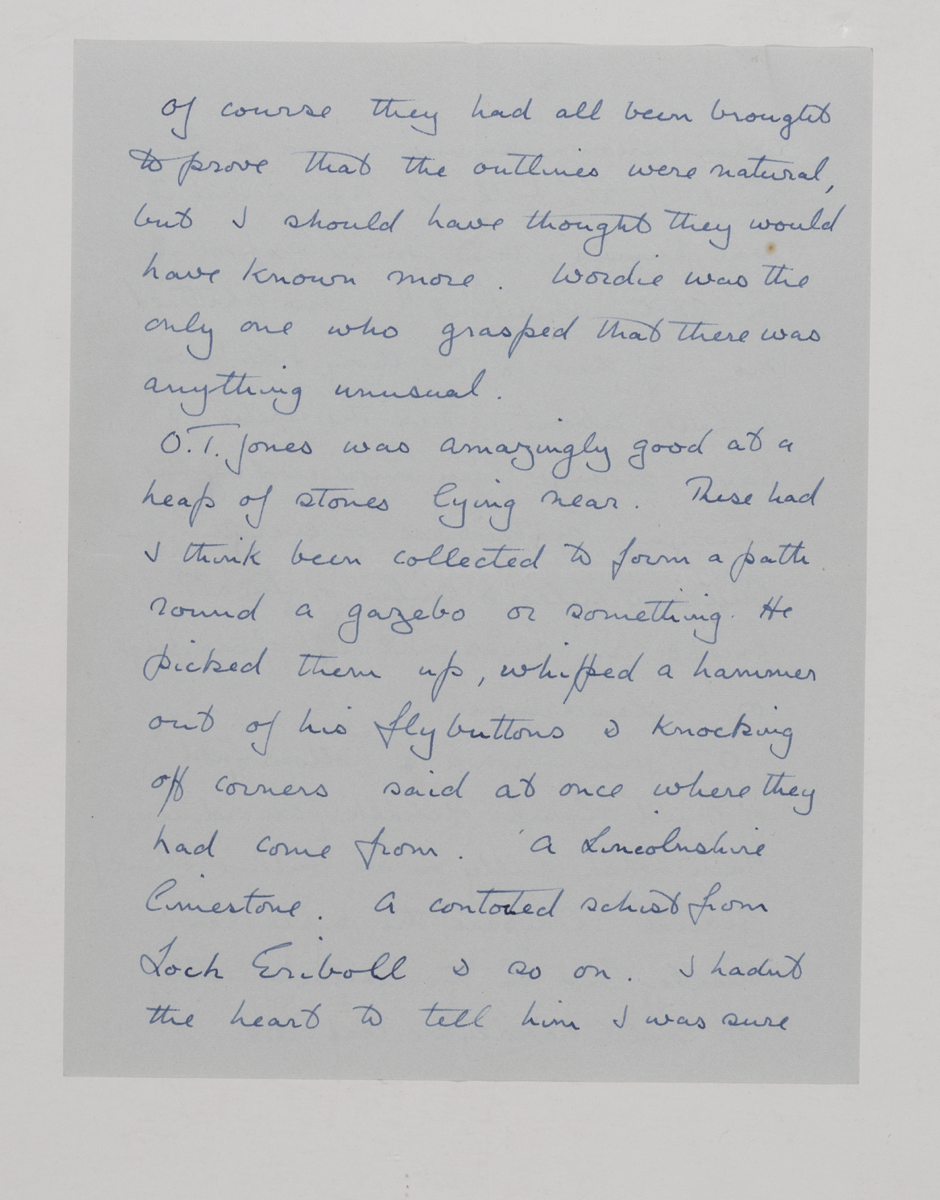 Of course they had all been brought
to prove that the outlines were natural,
but I should have thought they would
have known more. Wordie was the
only one who grasped that there was
anything unusual.
O.T. Jones was amazingly good at a
heap of stones lying near. These had
I think been collected to form a path
round a gazebo or something. He
picked them up, whipped a hammer
out of his fly buttons & knocking
off corners said at once where they
had come from. 'A Lincolnshire
limestone. A contorted schist from
Loch Eriboll & so on. I hadnt
the heart to tell him I was sure